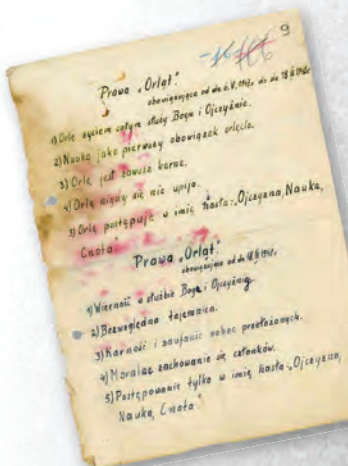 9
Prawa „Orląt".
obowiązujące od dn. 6.V.1947r. do dn.
1) Orlę życiem całym służy Bogu i Ojczyźnie.
2) Nauka jako pierwszy obowiązek orlęcia.
3) Orlę jest zawsze karne.
4) Orlę nigdy się nie upija.
5) Orlę postępuje w imię hasła: „Ojczyzna, Nauka,
Cnota"
Prawa „Orląt".
obowiązujące od dn.
1) Wierność w służbie Boga i Ojczyźnie
2) Bezwzględna tajemnica.
3) Karność i zaufanie wobec przełożonych.
4) Moralne zachowanie się członków.
5) Postępowanie tylko w imię hasła: „Ojczyzna,
Nauka, Cnota."